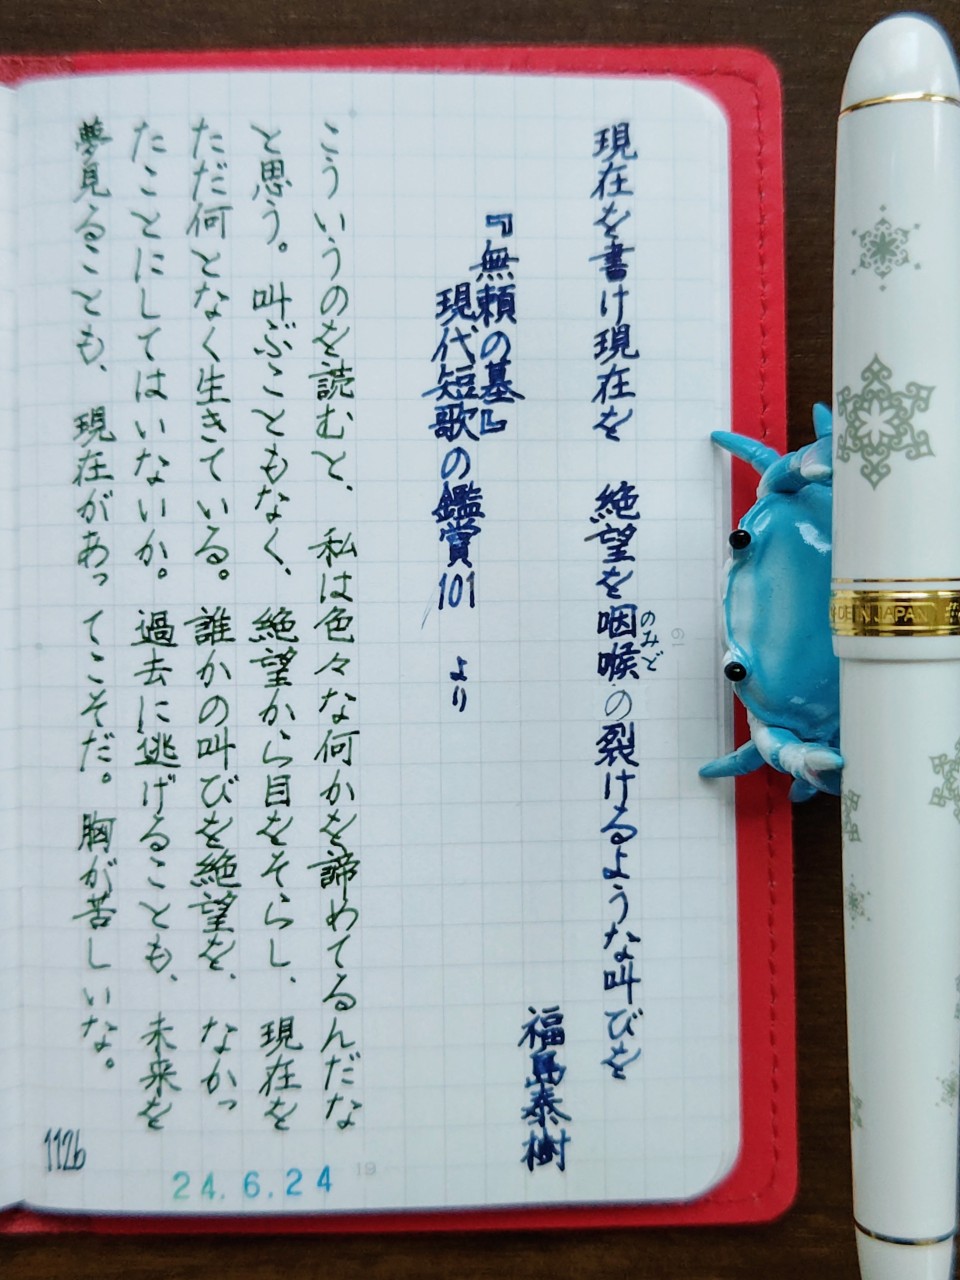 現在を書け現在を　絶望を咽喉の裂けるような叫びを
のみど
福島泰樹
『無頼の墓』
現代短歌の鑑賞101　より
こういうのを読むと、私は色々な何かを諦めてるんだな
と思う。叫ぶこともなく、絶望から目をそらし、現在を
ただ何となく生きている。誰かの叫びを絶望を、なかっ
たことにしてはいないか。過去に逃げることも、未来を
夢見ることも、現在があってこそだ。胸が苦しいな。
1126
24.6.24
19
DE IN JAPAN